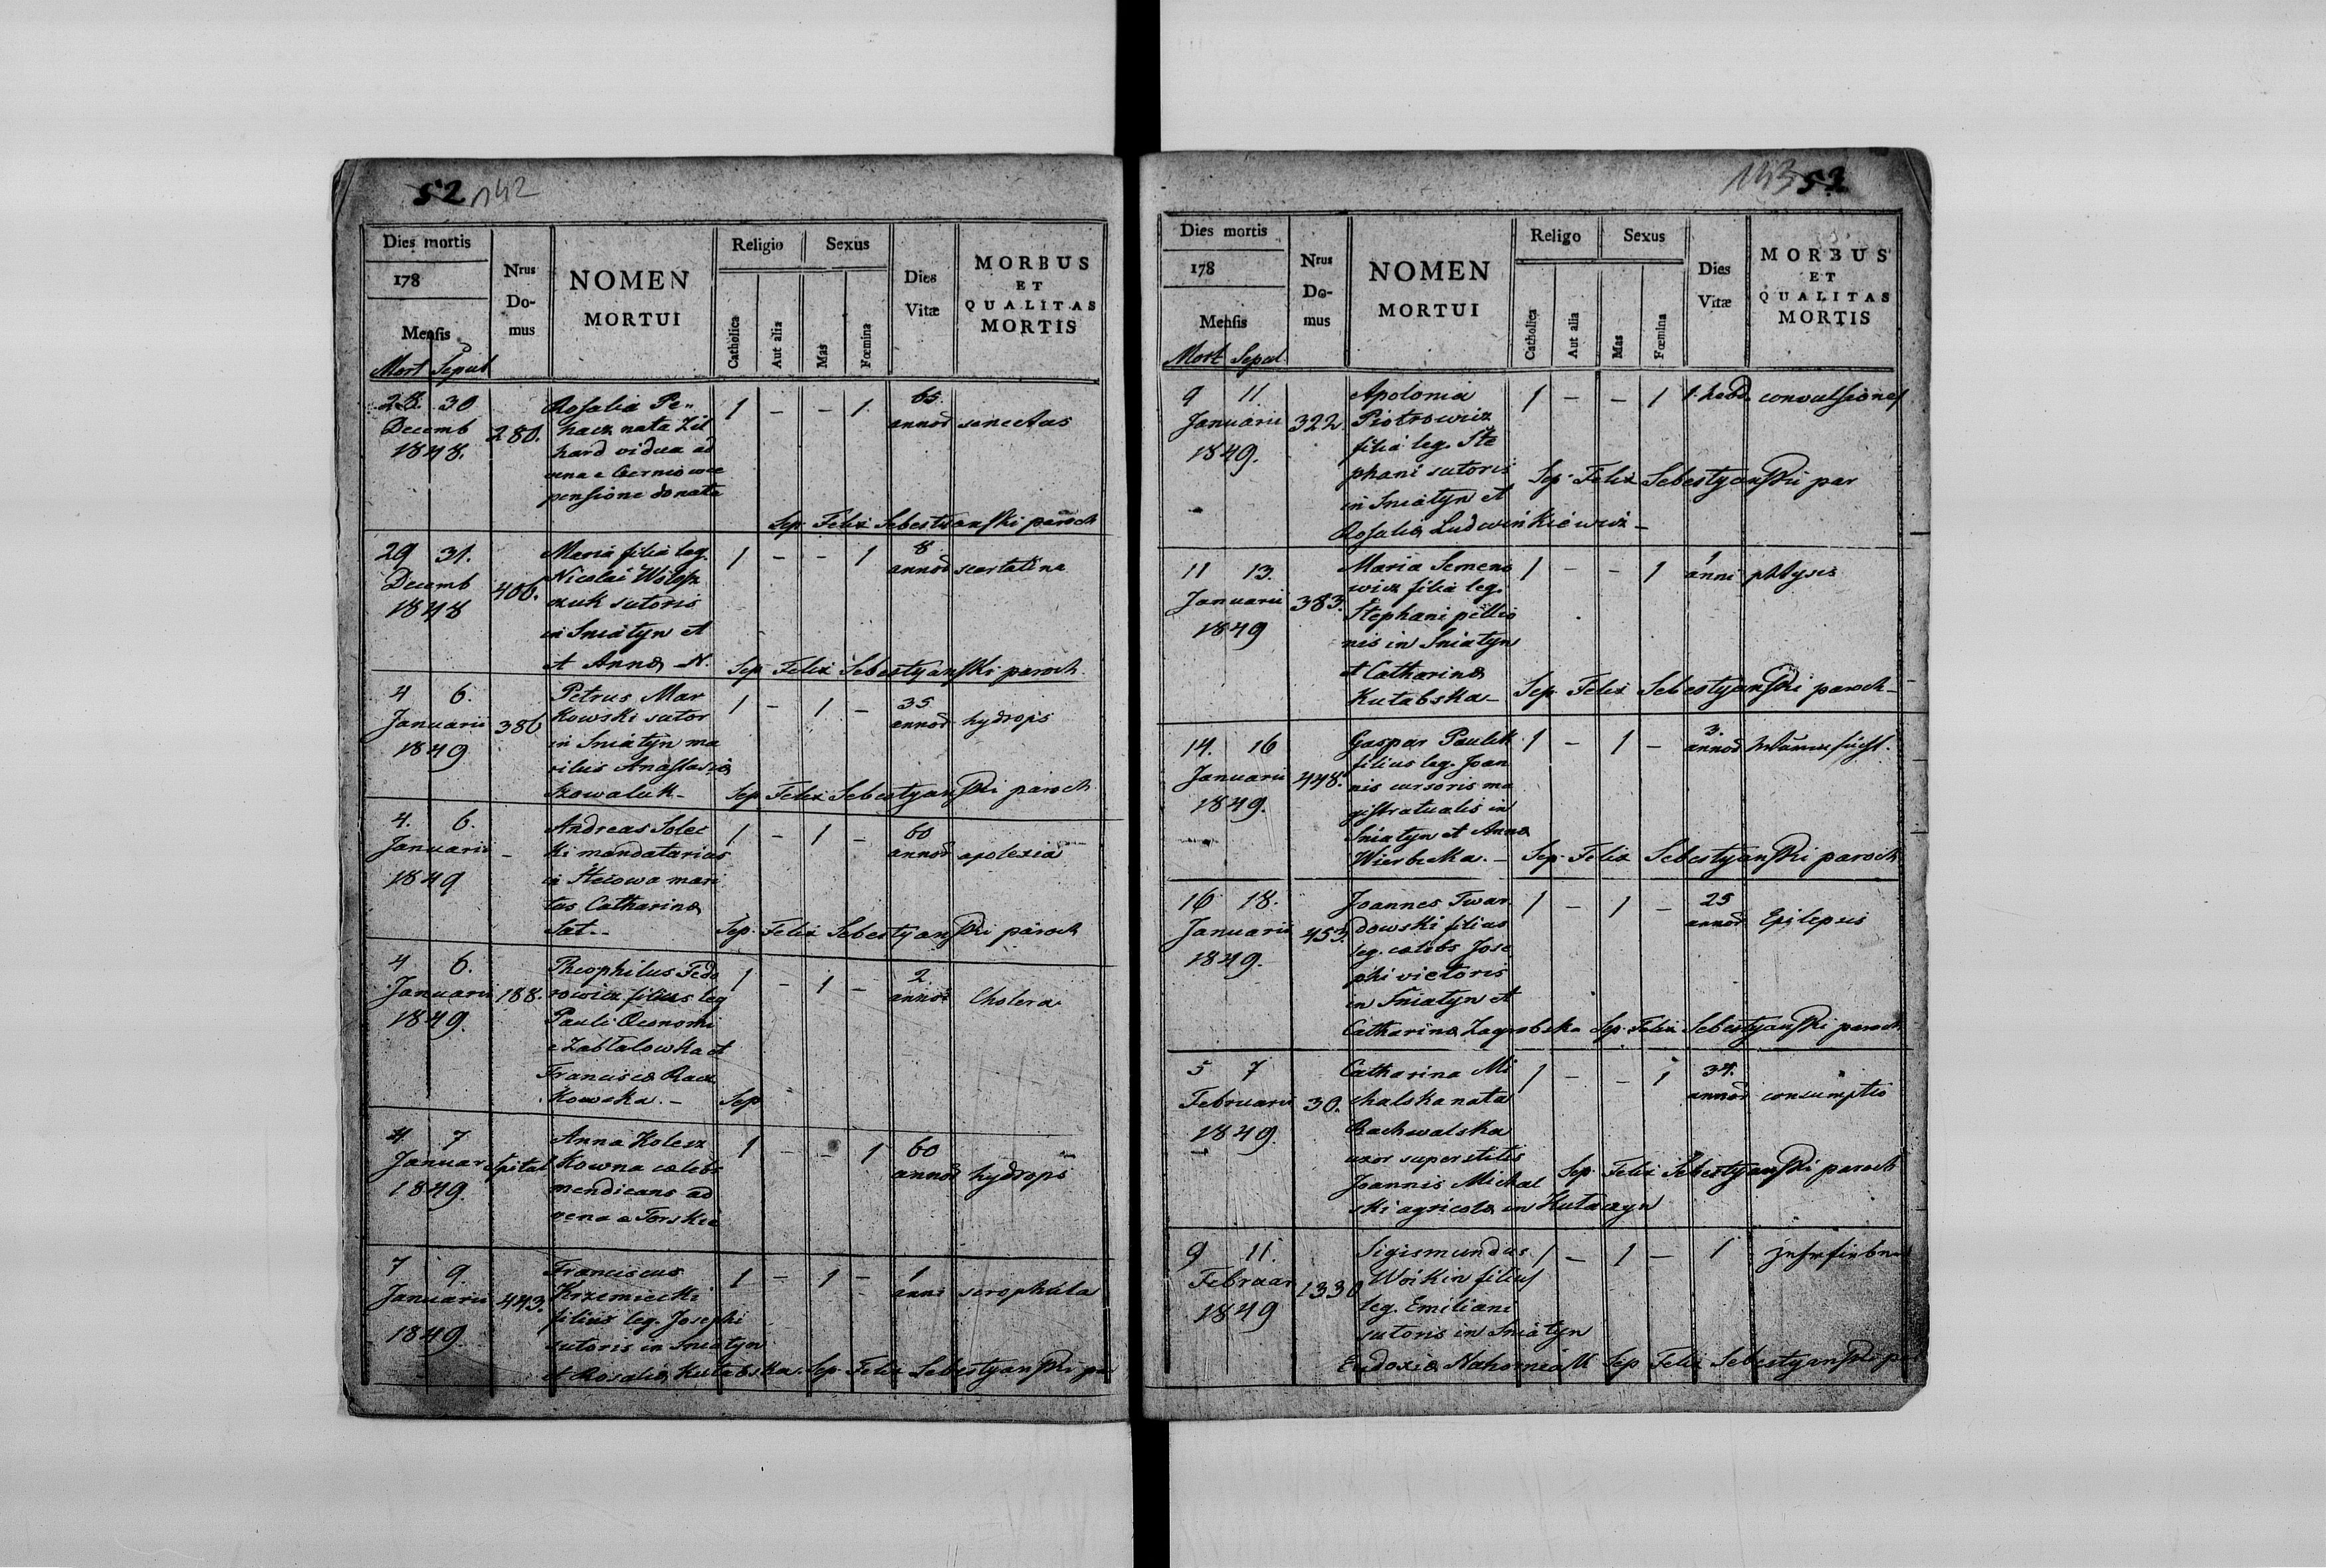 52 142
Dies mortis
178
Mensis
Mort Sepul
Nrus Do- mus
NOMEN
MORTUI
Religio
Catholica
Aut alia
Sexus
Mas
Fœmina
Dies
Vitæ
MORBUS
ET
QUALITAS
MORTIS
28. 30 Rosalia Pe„ 1 – – 1 65
Decemb 280. hacz nata Zil annoR senectus
1848. hard vidua ad
vena e Czerniowce
pensione donata
Sep Felix Sebestyanski paroch
29 31. Maria filia leg. 1 – – 1 8
Decemb 400. Nicolai annoR scarlatina
1848 czuk sutoris
in Sniatyn et
et Annæ N. Sep Felix Sebestyanski paroch
4 6. Petrus Mar 1 – 1 – 35
Januarii 386 kowski sutor annoR hydrops
1849 in Sniatyn ma
ritus Anastasiæ
Kowaluk – Sep Felix Sebestyanski paroch
4. 6. Andreas Solec 1 – 1 – 60
Januarii – ki mandatarius annoR apolexia
1849 in Stecowa mari
tus Catharinæ
Sat.– Sep. Felix Sebestyanski paroch
4 6. Theophilus Fedo 1 – 1 – 2
Januarii 188. rowicz filius leg annoR Cholera
1849. Pauli Oeconomi
e Zablatowka et
Francisca Racz
kowska. – Sep
4. 7 Anna Kolesz 1 – – 1 60
Januar Spital kowna cœlebs annoR hydrops
1849. mendicans ad
vena e Torskie
7 9. Franciscus 1 – 1 – 1
Januarii 443. Krzemiecki anni scrophula
1849 filius leg. Josephi
sutoris in Sniatyn
et Rosaliæ Kutabska. Sep Felix Sebestyanski pa
143 53
Dies mortis
178
Mensis
Mort Sepul
Nrus Do- mus
NOMEN
MORTUI
Religo
Catholica
Aut alia
Sexus
Mas
Fœmina
Dies
Vitæ
MORBUS
ET
QUALITAS
MORTIS
9 11 Apolonia 1 – – 1 1. hebd. convulsiones
Januarii 322. Piotrowicz
1849. filia leg. Ste
phani sutoris
in Sniatyn et Sep. Felix Sebestyanski par
Rosaliæ Ludwinkiewicz –
11 13. Maria Semeno 1 – – 1 1
Januarii 383. wicz filia leg. anni phtysis
1849 Stephani pellio
nis in Sniatyn
et Catharinæ
Kutabska – Sep Felix Sebestyanski paroch –
14. 16 Gaspar Paulik 1 – 1 – 3.
Januarii 448. filius leg. Joan annoR
1849. nis cursoris ma
gistratualis in
Sniatyn et Annæ
Wierbicka. – Sep Felix Sebestyanski paroch
16 18. Joannes Twar 1 – 1 – 25
Januarii 453. dowski filius annoR Epilepsis
1849. leg. cœlebs Jose
phi victoris
in Sniatyn et
Catharinæ Zagrobska Sep. Felix Sebestyanski paroch
5 7 Catharina Mi 1 – – 1 34.
Februarii 30. chalska nata annoR consumptio
1849. Rachwalska
uxor superstitis
Joannis Michal Sep Felix Sebestyanski paroch
ski agricolæ in Kutaczyn
9 11. Sigismundus 1 – 1 – 1
Februar 1330 Woikin filius
1849 leg. Emiliani
sutoris in Sniatyn
Eudoxiæ Nahorniak Sep Felix Sebestyanski pa